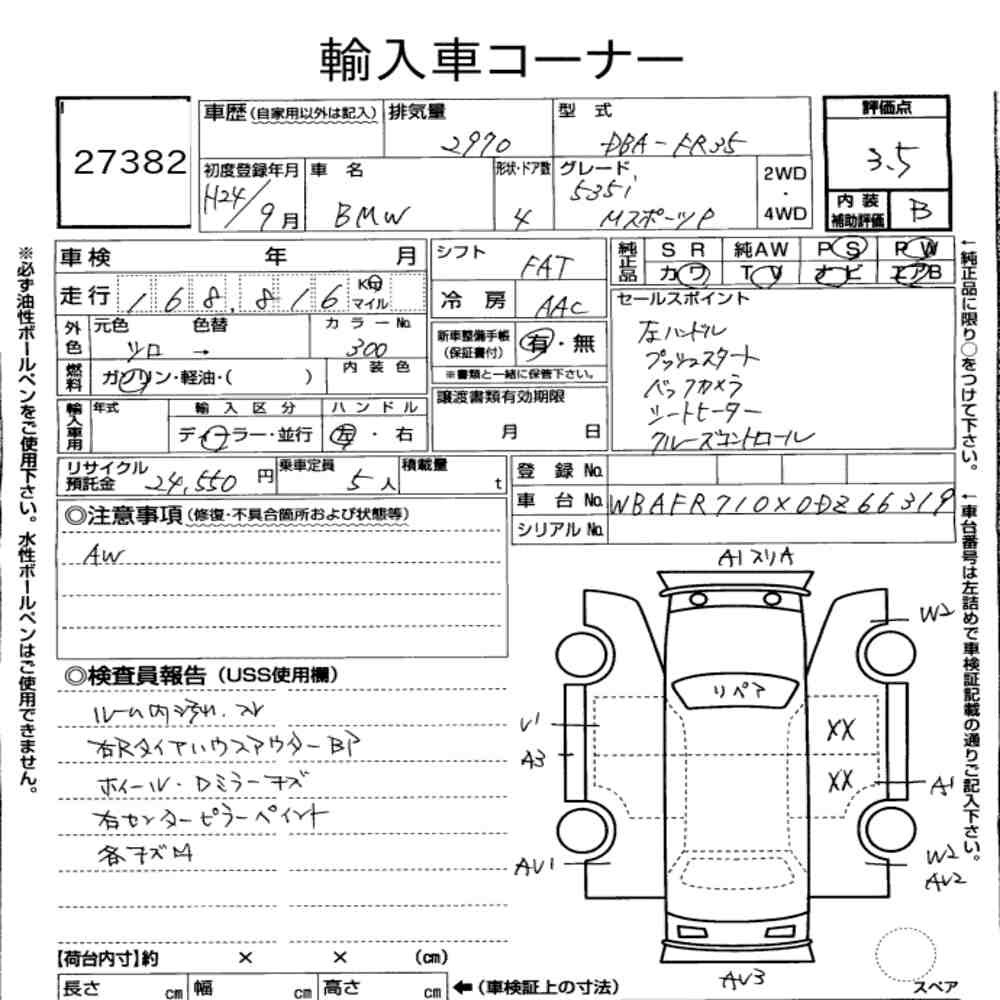 輸入車コーナー
27382
車歴(自家用以外は記入)
排気量
2970
型 式
DBA-FR35
評価点
3.5
初度登録年月
H24/9月
車 名
BMW
形状・ドア数
4
グレード
535i
MスポーツP
2WD
・
4WD
内装
補助評価
B
車検 年 月
シフト
FAT
純正品
SR 純AW PS PW
カワ TV ナビ エアB
走行 168,816 Km マイル
冷 房
AAC
セールスポイント
左ハンドル
プッシュスタート
バックカメラ
シートヒーター
クルーズコントロール
外色
元色 色替
シロ →
カラーNo.
300
新車整備手帳
(保証書付)
有・無
※書類と一緒に保管下さい。
燃料
ガソリン・軽油・( )
内装色
譲渡書類有効期限
月 日
輸入車用
年式
輸入区分
ディーラー・並行
ハンドル
左・右
リサイクル
預託金
24,550円
乗車定員
5人
積載量
t
登録 No.
車台 No.
WBAFR710X0DZ66319
シリアル No.
◎注意事項(修復・不具合箇所および状態等)
AW
◎検査員報告(USS使用欄)
ルーム内汚れ、スレ
右RタイヤハウスアウターBP
ホイール・Dミラーキズ
右センターピラーペイント
各キズ凹
A1スリA
W2
リペア
U1
XX
A3
XX
A1
AU1
W2
AU2
AU3
スペア
【荷台内寸】約 × × (cm)
長さ cm 幅 cm 高さ cm
←(車検証上の寸法)
※必ず油性ボールペンをご使用下さい。水性ボールペンはご使用できません。
←純正品に限り○をつけて下さい。
←車台番号は左詰めで車検証記載の通りご記入下さい。